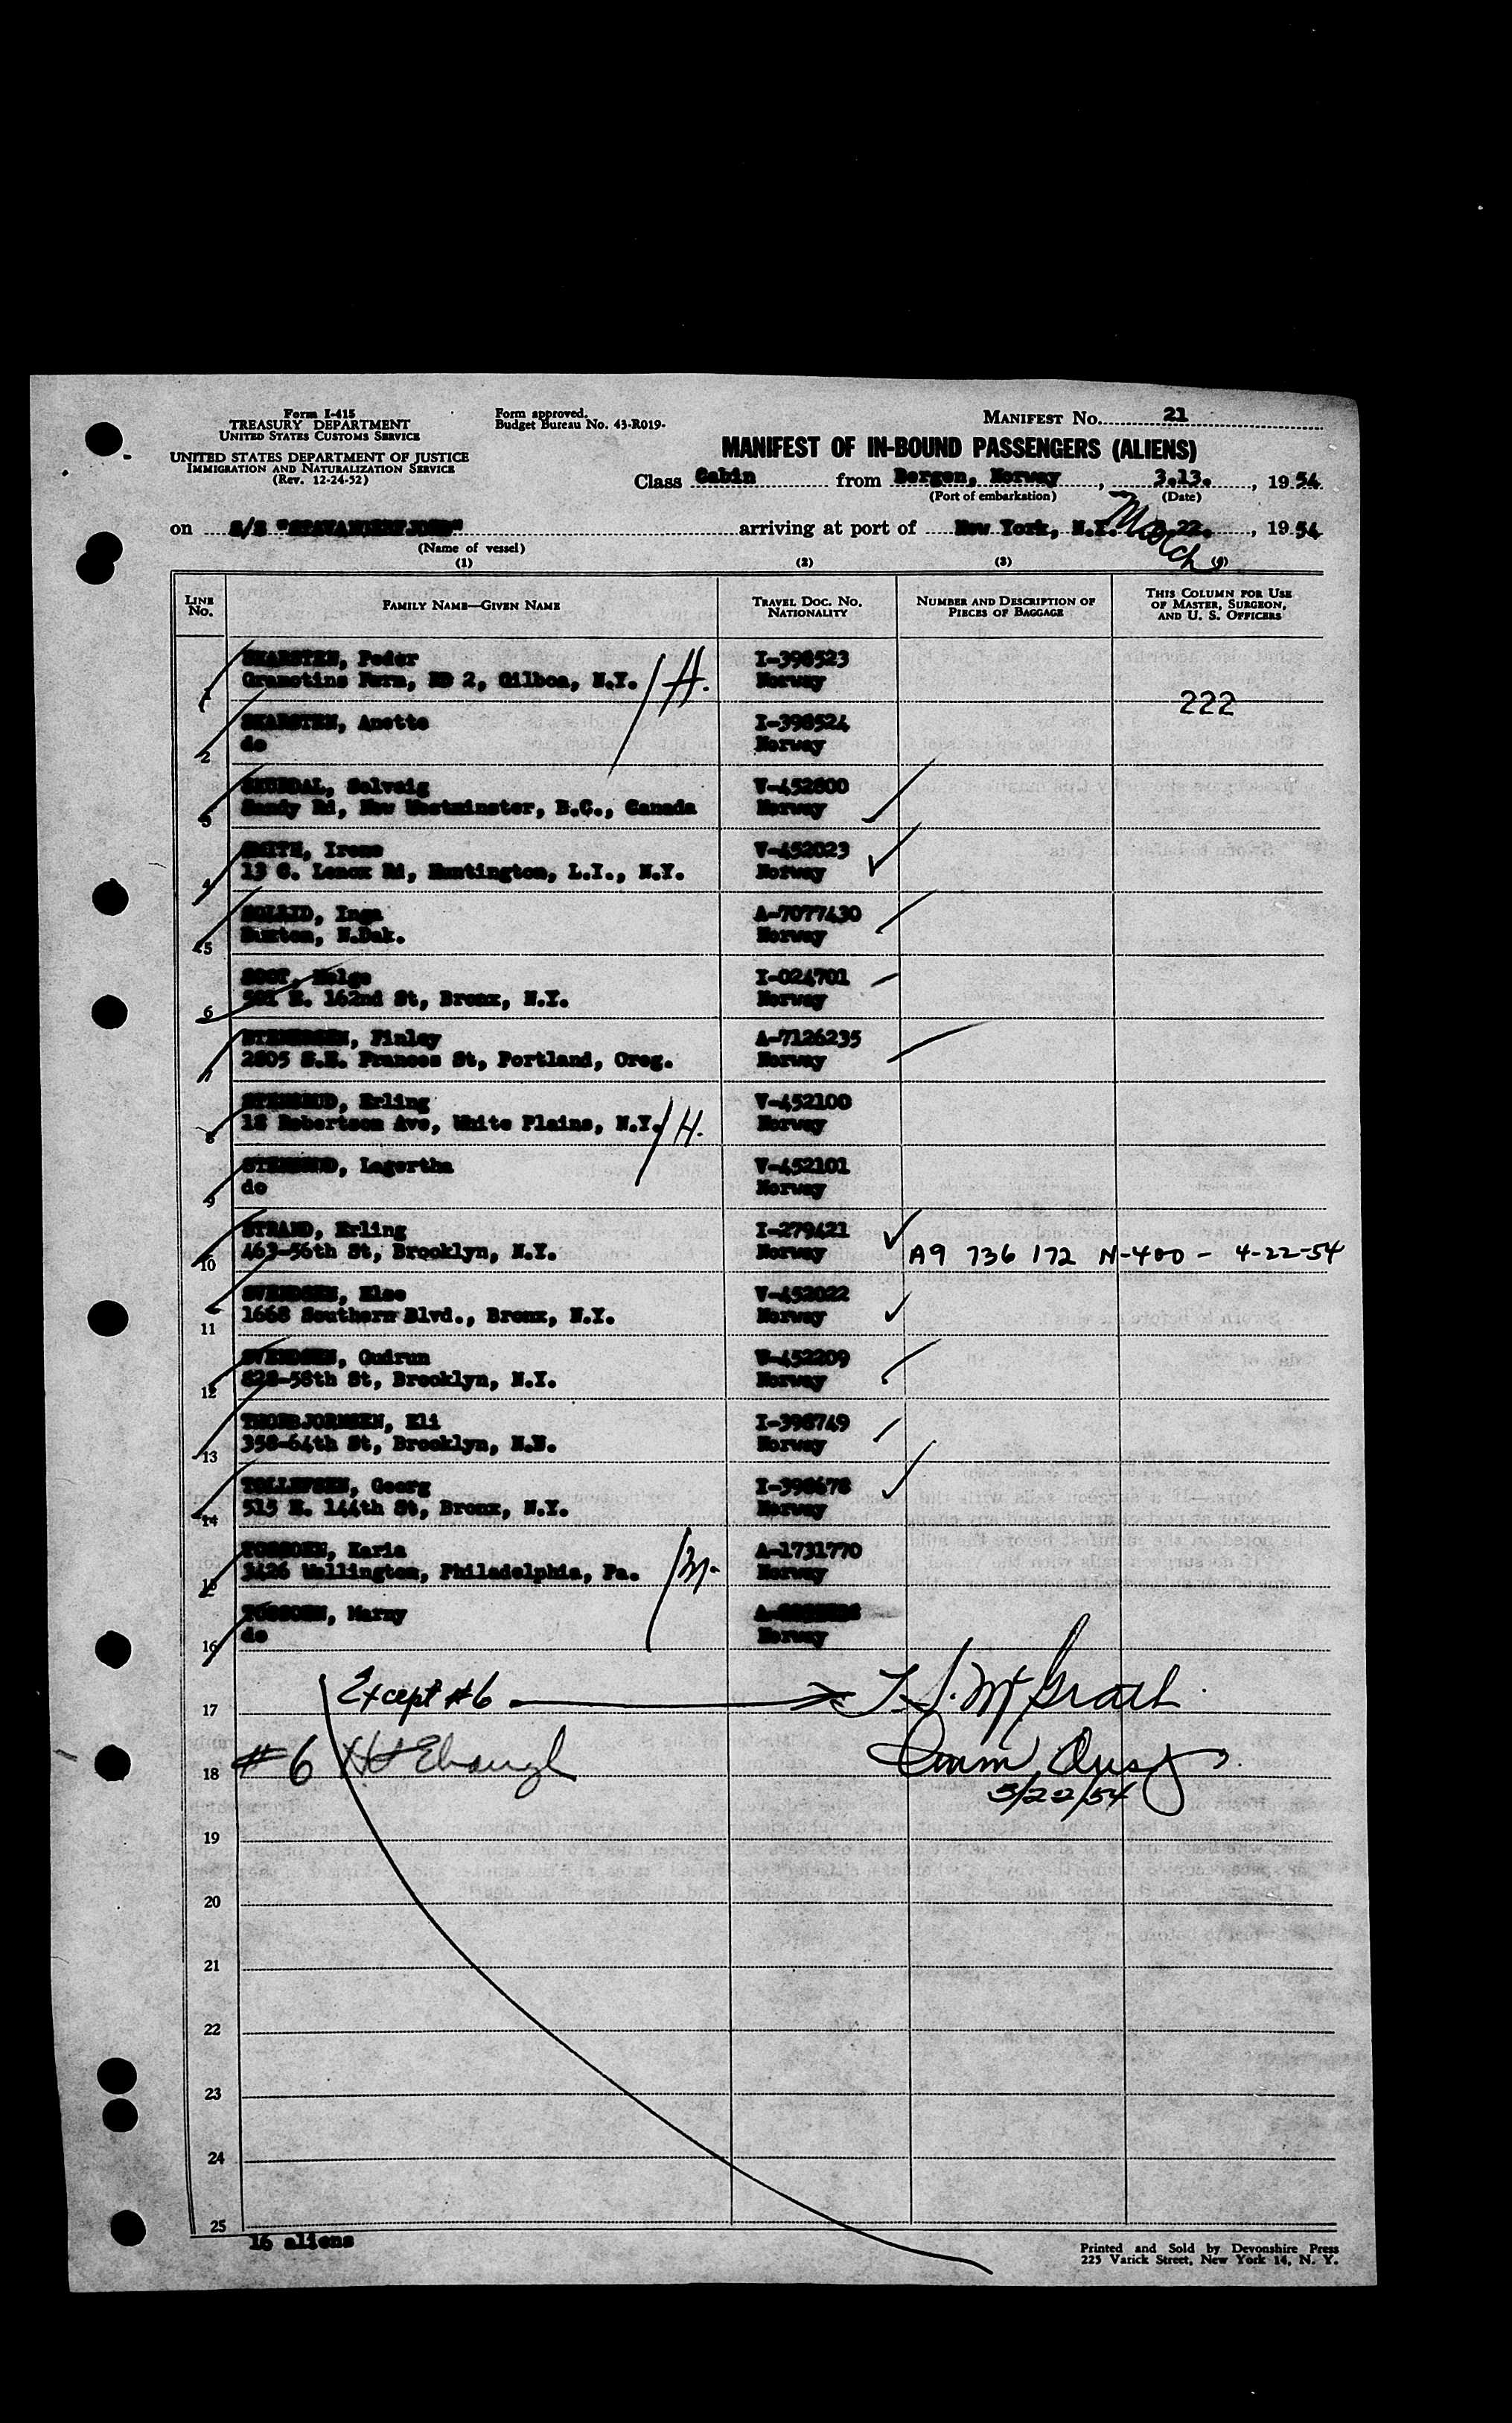 Form I-415
TREASURY DEPARTMENT
UNITED STATES CUSTOMS SERVICE
UNITED STATES DEPARTMENT OF JUSTICE
IMMIGRATION AND NATURALIZATION SERVICE
(Rev. 12-24-52)
Form approved.
Budget Bureau No. 43-R019-
MANIFEST No. 21
MANIFEST OF IN-BOUND PASSENGERS (ALIENS)
Class Cabin from Bergen, Norway, 3.13., 1954
(Port of embarkation) (Date)
on S/S "STAVANGERFJORD" arriving at port of New York, N.Y. March 22., 1954
(Name of vessel)
(1) (2) (3)
LINE No. FAMILY NAME—GIVEN NAME TRAVEL DOC. NO. NATIONALITY NUMBER AND DESCRIPTION OF PIECES OF BAGGAGE THIS COLUMN FOR USE OF MASTER, SURGEON, AND U. S. OFFICERS
1 SKARSTEN, Peder I-398523
Gramstins Farm, RD 2, Gilboa, N.Y. H. Norway
222
2 SKARSTEN, Anette I-398524
do Norway
3 Solveig V-452800
Sandy Rd, New Westminster, B.C., Canada Norway
4 SMITH, Irene V-452023
13 C. Lenox Rd, Huntington, L.I., N.Y. Norway
5 Inga A-7077430
Buxton, N.Dak. Norway
6 Helge I-024701
501 E. 162nd St, Bronx, N.Y. Norway
7 Finley A-7126235
2805 S.E. Frances St, Portland, Oreg. Norway
8 STENSRUD, Erling V-452100
18 Robertson Ave, White Plains, N.Y. H. Norway
9 STENSRUD, Lagertha V-452101
do Norway
10 STRAND, Erling I-279421
463-56th St, Brooklyn, N.Y. Norway A9 736 172 N-400 - 4-22-54
11 SVENDSEN, Else V-452022
1668 Southern Blvd., Bronx, N.Y. Norway
12 SVENDSEN, Gudrun V-452209
828-58th St, Brooklyn, N.Y. Norway
13 THORBJORNSEN, Eli I-398749
358-64th St, Brooklyn, N.N. Norway
14 TOLLEFSEN, Georg I-398678
515 E. 144th St, Bronx, N.Y. Norway
15 Karia A-1731770
3426 Wellington, Philadelphia, Pa. M. Norway
16 Marny
do Norway
17 Except #6 T. J. McGrath
18 #6 Imm Insp
3/22/54
19
20
21
22
23
24
25
16 aliens
Printed and Sold by Devonshire Press
225 Varick Street, New York 14, N. Y.